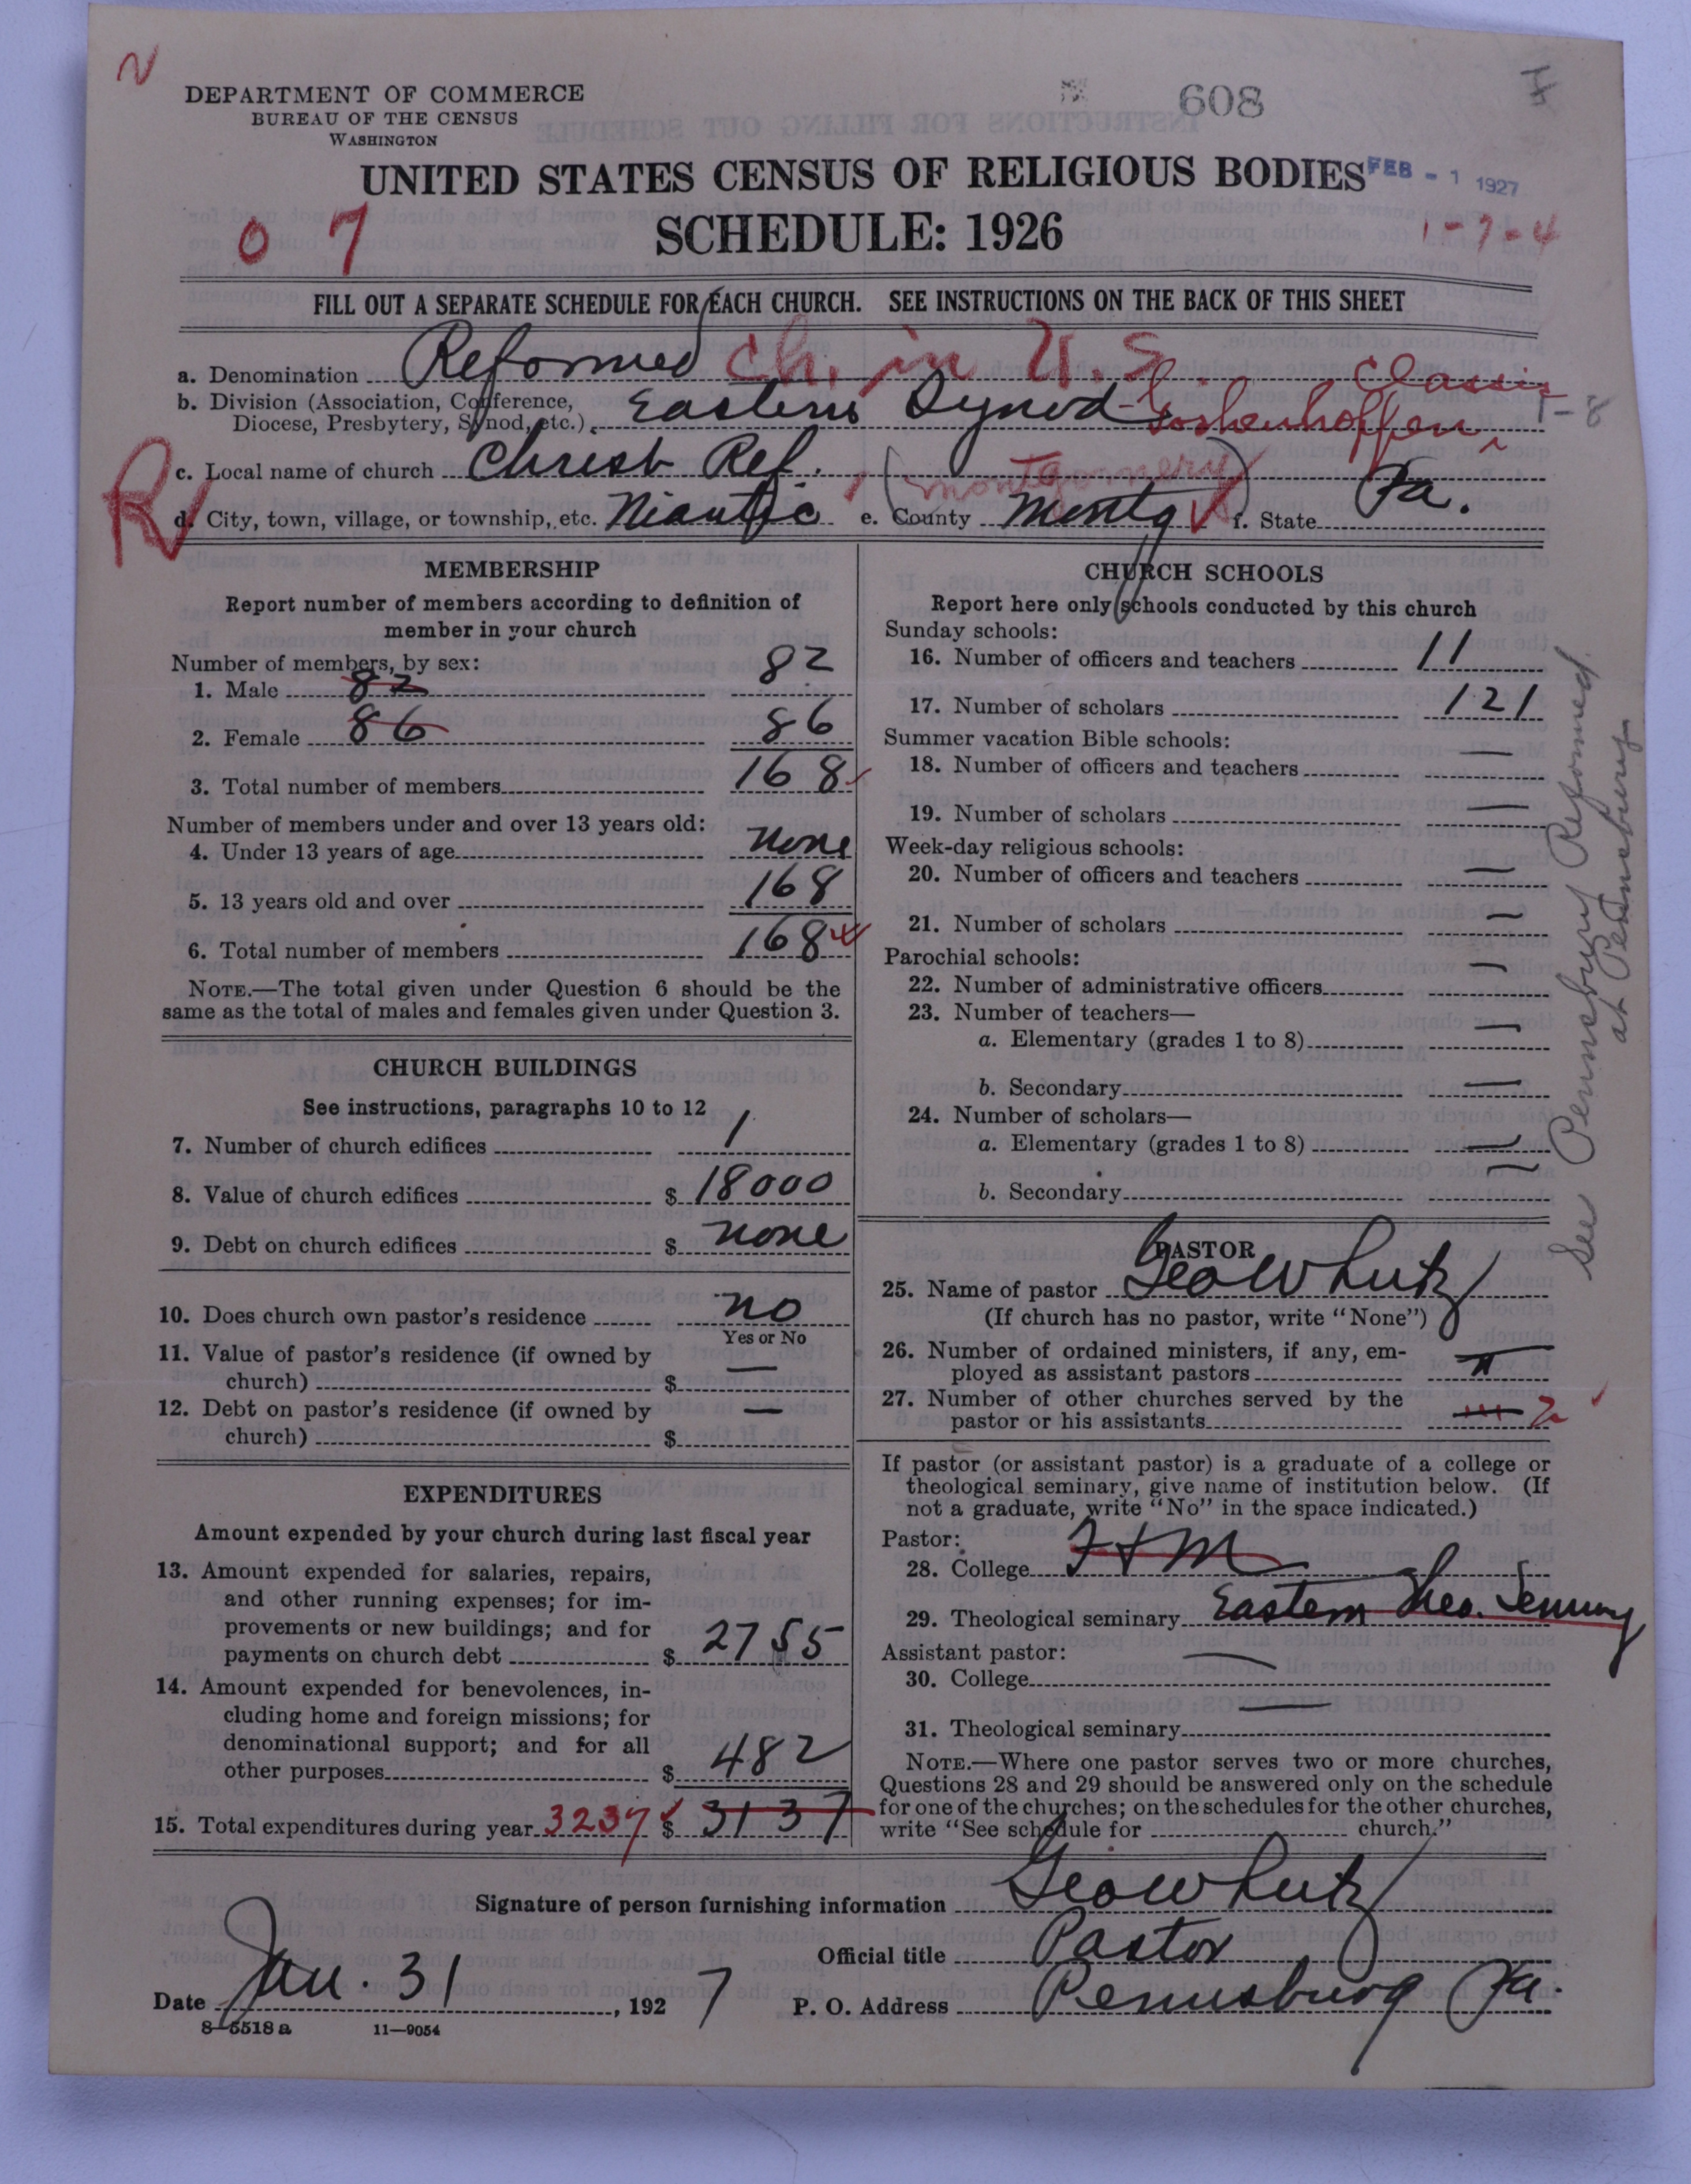 N
DEPARTMENT OF COMMERCE
BUREAU OF THE CENSUS
WASHINGTON
608
UNITED STATES CENSUS OF RELIGIOUS BODIES
FEB - 1 1927
SCHEDULE: 1926
0 7
1-7-4
FILL OUT A SEPARATE SCHEDULE FOR EACH CHURCH. SEE INSTRUCTIONS ON THE BACK OF THIS SHEET
a. Denomination Reformed Ch. in U.S.
b. Division (Association, Conference, Diocese, Presbytery, Synod, etc.) Eastern Synod - Goshenhoppen Classis
T-8
c. Local name of church Christ Ref.
(Montgomery)
R
d. City, town, village, or township, etc. Niantic e. County Montg f. State Pa.
MEMBERSHIP
Report number of members according to definition of
member in your church
Number of members, by sex:
1. Male 82 82
2. Female 86 86
3. Total number of members 168
Number of members under and over 13 years old:
4. Under 13 years of age none
5. 13 years old and over 168
6. Total number of members 168
NOTE.—The total given under Question 6 should be the
same as the total of males and females given under Question 3.
CHURCH BUILDINGS
See instructions, paragraphs 10 to 12
7. Number of church edifices 1
8. Value of church edifices $ 18000
9. Debt on church edifices $ none
10. Does church own pastor's residence no
Yes or No
11. Value of pastor's residence (if owned by
church) $ —
12. Debt on pastor's residence (if owned by
church) $ —
EXPENDITURES
Amount expended by your church during last fiscal year
13. Amount expended for salaries, repairs,
and other running expenses; for im-
provements or new buildings; and for
payments on church debt $ 2755
14. Amount expended for benevolences, in-
cluding home and foreign missions; for
denominational support; and for all
other purposes $ 482
15. Total expenditures during year 3237 $ 3137
CHURCH SCHOOLS
Report here only schools conducted by this church
Sunday schools:
16. Number of officers and teachers 11
17. Number of scholars 121
Summer vacation Bible schools:
18. Number of officers and teachers —
19. Number of scholars —
Week-day religious schools:
20. Number of officers and teachers —
21. Number of scholars —
Parochial schools:
22. Number of administrative officers —
23. Number of teachers—
a. Elementary (grades 1 to 8) —
b. Secondary —
24. Number of scholars—
a. Elementary (grades 1 to 8) —
b. Secondary —
See Pennsburg Reformed
at Pennsburg
PASTOR
25. Name of pastor Geo W Lutz
(If church has no pastor, write "None")
26. Number of ordained ministers, if any, em-
ployed as assistant pastors
27. Number of other churches served by the
pastor or his assistants 2
If pastor (or assistant pastor) is a graduate of a college or
theological seminary, give name of institution below. (If
not a graduate, write "No" in the space indicated.)
Pastor:
28. College F + M
29. Theological seminary Eastern Theo. Seminary
Assistant pastor:
30. College —
31. Theological seminary —
NOTE.—Where one pastor serves two or more churches,
Questions 28 and 29 should be answered only on the schedule
for one of the churches; on the schedules for the other churches,
write "See schedule for church."
Signature of person furnishing information Geo W Lutz
Official title Pastor
Date Jan. 31, 1927 P. O. Address Pennsburg Pa.
8-5518 a 11—9054